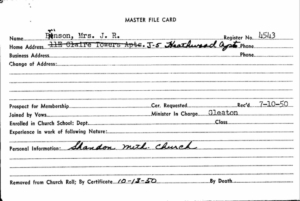 MASTER FILE CARD
Name Hinson, Mrs. J. R. Register No. 4543
Home Address 11B Claire Towers Apts. J-5 Heathwood Apts Phone
Business Address Phone
Change of Address:
Prospect for Membership Cer. Requested Rec'd. 7-10-50
Joined by Vows Minister In Charge Gleaton
Enrolled in Church School: Dept. Class
Experience in work of following Nature:
Personal Information: Shandon Meth. Church
Removed from Church Roll; By Certificate 10-13-50 By Death